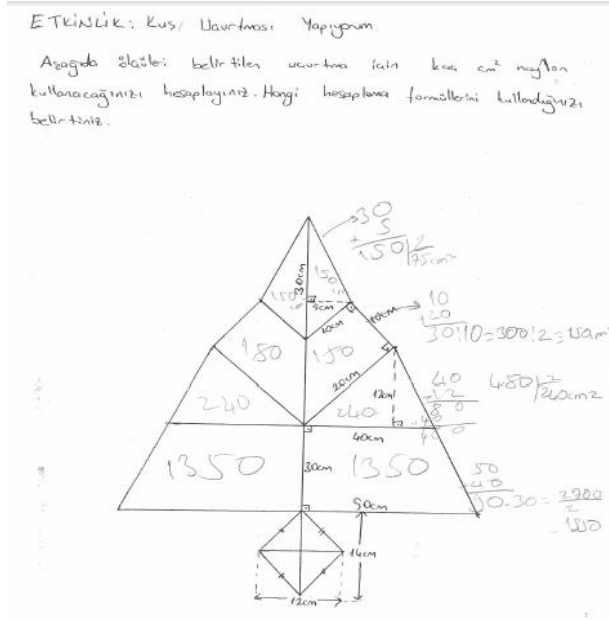 ETKİNLİK: Kuş Uçurtması Yapıyorum
Aşağıda ölçüleri belirtilen uçurtma için kaç cm² naylon
kullanacağınızı hesaplayınız. Hangi hesaplama formüllerini kullandığınızı
belirtiniz.
30
5
150 2
75cm²
30cm
150
150
5cm
10cm
10cm
10
+20
30:10=300:2=150m²
180
150
20cm
12cm
240
240
40
12
80
480 2
240cm2
40cm
1350
1350
30cm
50
+40
90.30=2700
2
90cm
14cm
12cm